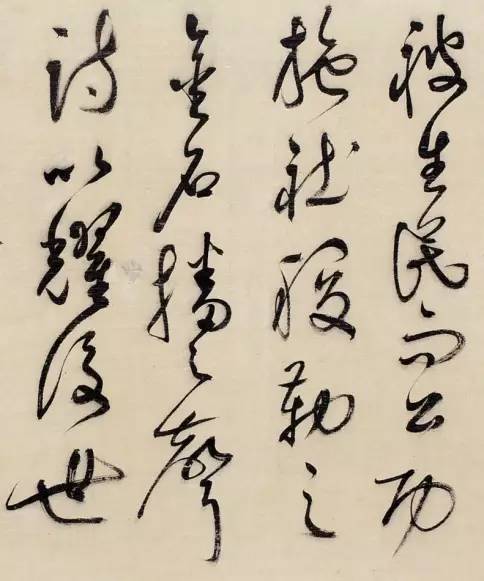 被生民而公功
施社稷勒之
金石播之聲
詩以耀後世